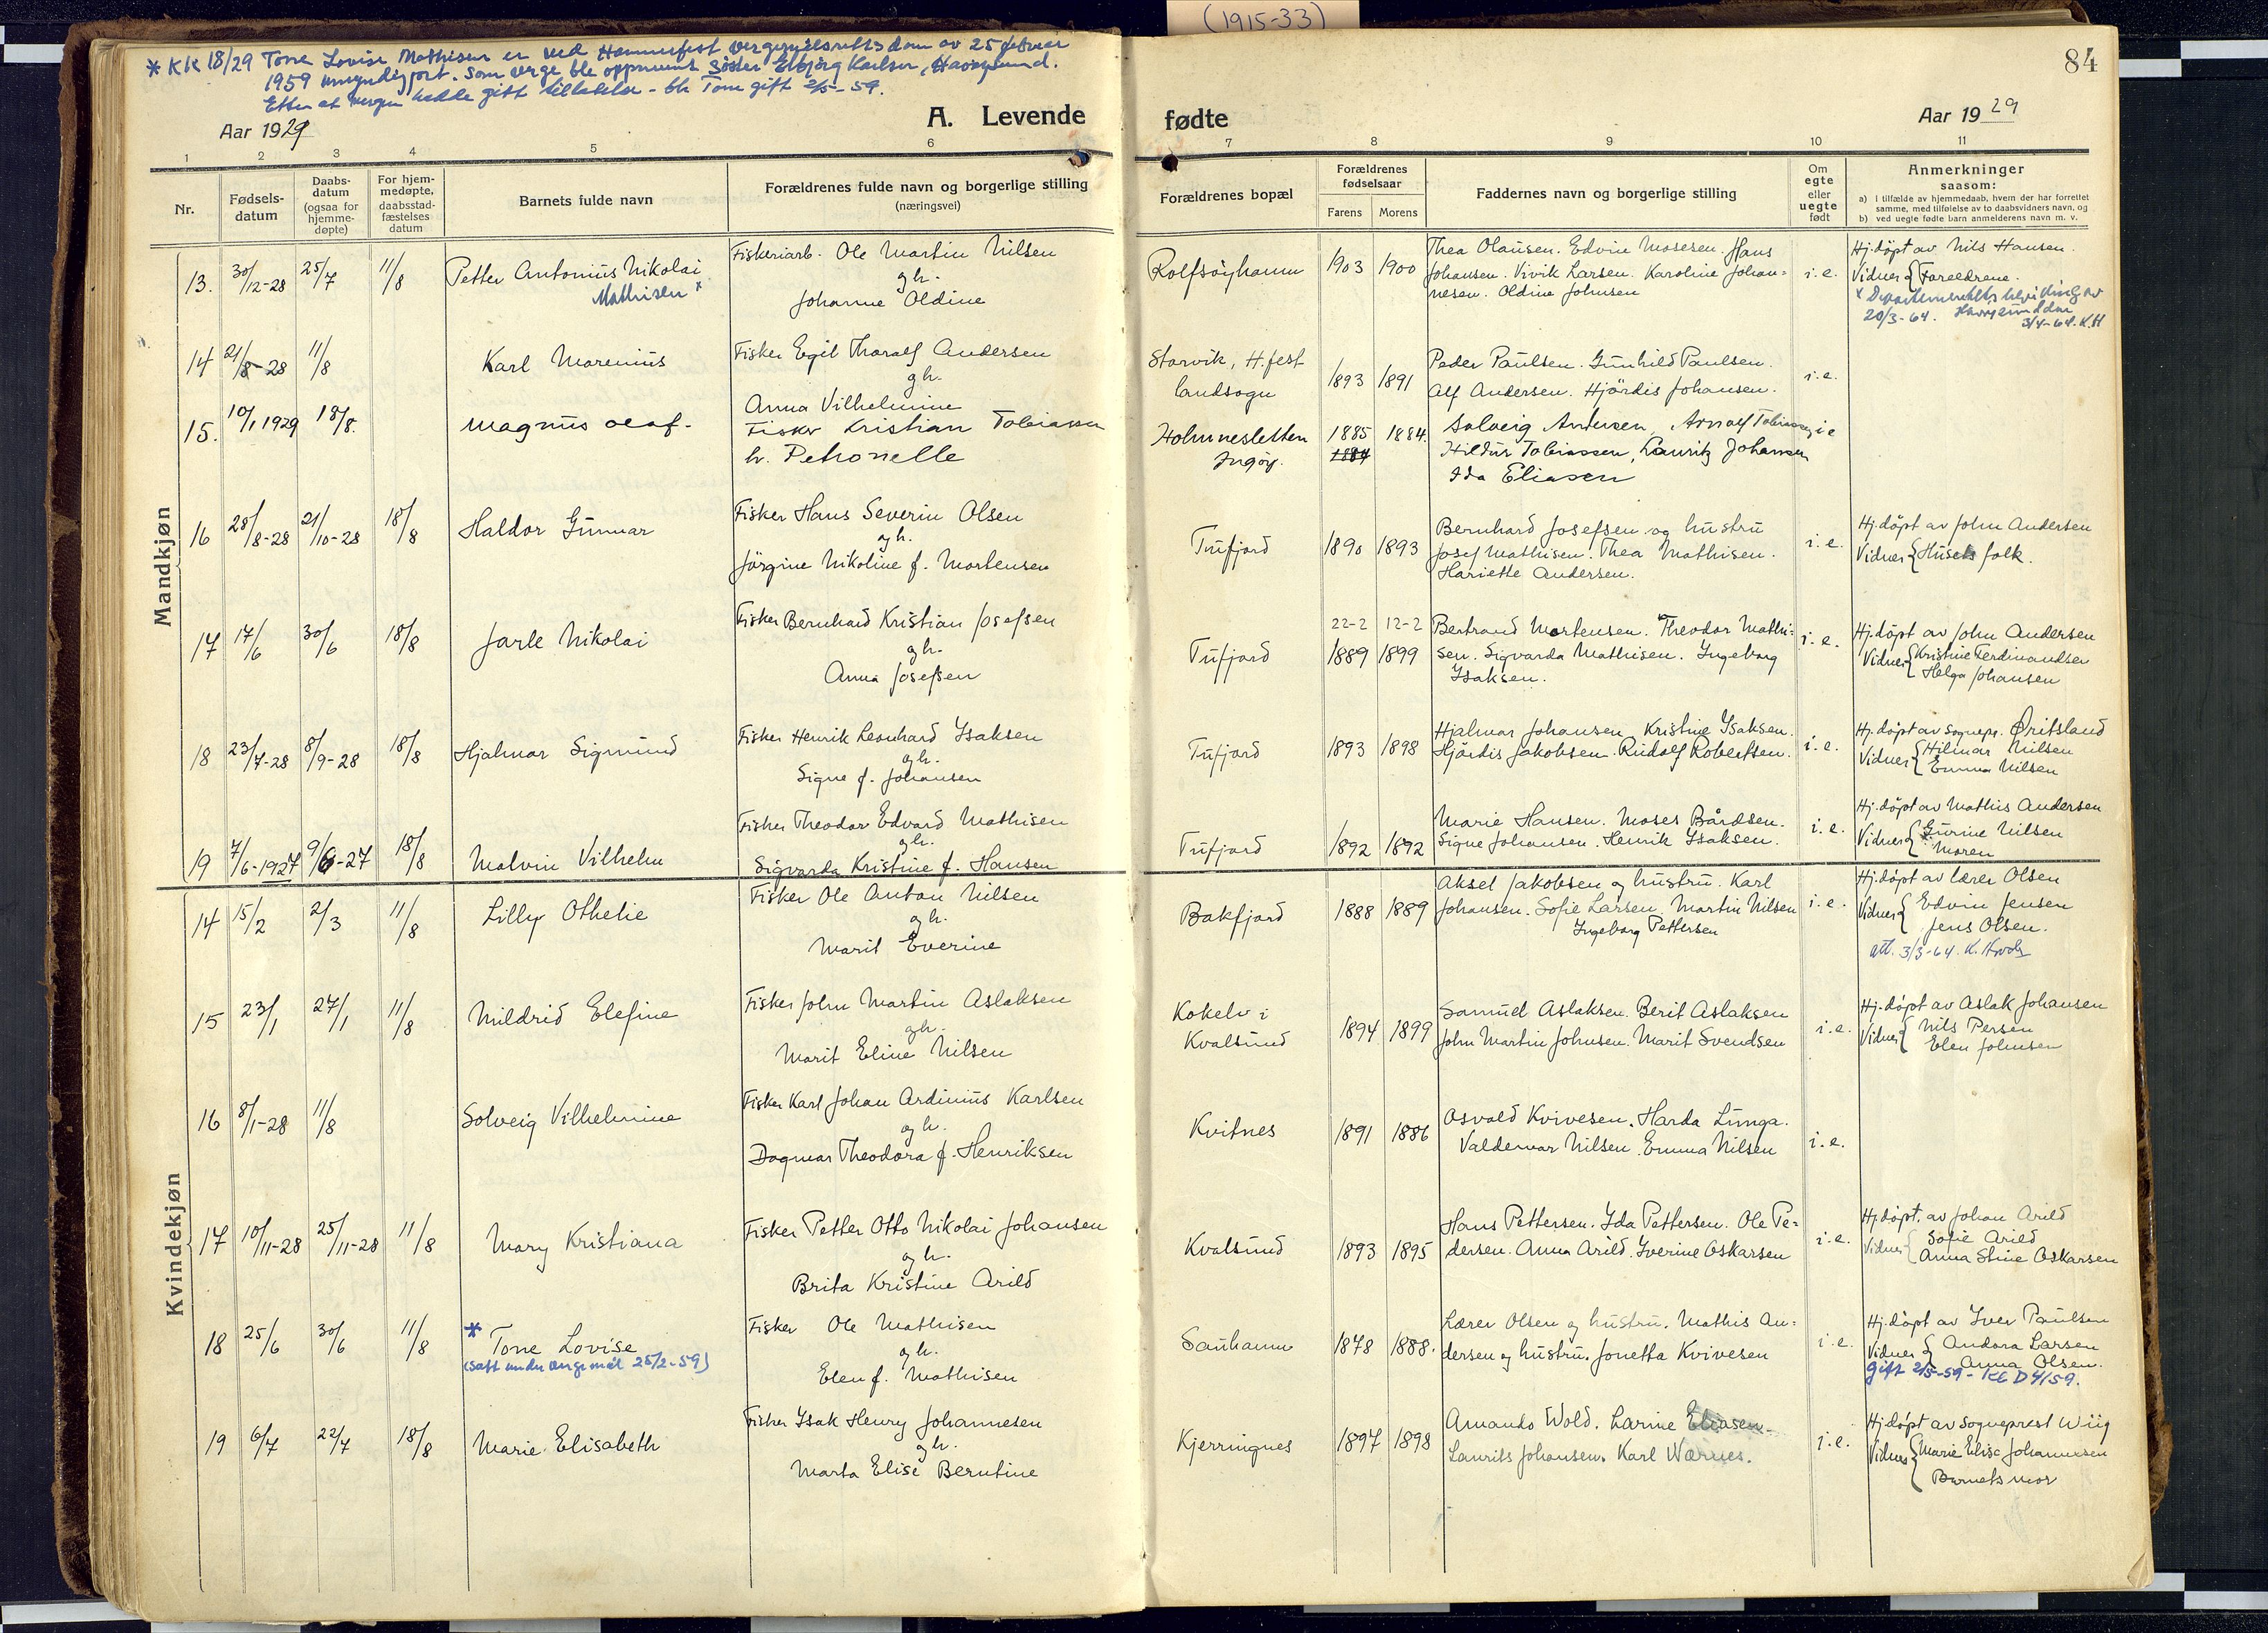 (1915-33)
84
* KK 18/29 Tone Lovise Mathisen er ved Hammerfest vergemålsretts dom av 25 februar
1959 umyndiggjort. Som verge ble oppnevnt Søster Elbjørg Karlsen, Havøysund.
Etter at vergen hadde gitt tillatelse - ble Tone gift 2/5-59.
Aar 1929
A. Levende fødte
Aar 1929
1 2 3 4 5 6 7 8 9 10 11
Nr.
Fødsels-
datum
Daabs-
datum
(ogsaa for
hjemme-
døpte)
For hjem-
medøpte,
daabsstad-
fæstelses
datum
Barnets fulde navn
Forældrenes fulde navn og borgerlige stilling
(næringsvei)
Forældrenes bopæl
Forældrenes
fødselsaar
Farens Morens
Faddernes navn og borgerlige stilling
Om
egte
eller
uegte
født
Anmerkninger
saasom:
a) i tilfælde av hjemmedaab, hvem der har forrettet
samme, med tilføielse av to daabsvidners navn, og
b) ved uegte fødte barn anmelderens navn m. v.
Mandkjøn
13. 30/12-28 25/7 11/8 Petter Antonius Nikolai
Mathisen x
Fiskeriarb. Ole Martin Nilsen
og h.
Johanne Oldine
Rolfsøyhamn 1903 1900
Thea Olausen. Edvin Mosesen. Hans
Johansen. Vivik Larsen. Karoline Johan=
nesen. Oldine Johnsen
i.e.
Hj.døpt av Nils Hansen.
Vidner { Foreldrene.
x Departementets bevilling av
20/3-64. Havøysund den
3/4-64. K.H
14 21/8-28 11/8 Karl Marenius
Fisker Egil Tharalf Andersen
og h.
Anna Vilhelmine
Storvik, H.fest
landsogn
1893 1891
Peder Paulsen. Gunhild Paulsen.
Alf Andersen. Hjördis Johansen.
i.e.
15. 10/1 1929 18/8. Magnus Olaf.
Fisker Kristian Tobiassen
h. Petronelle
Holmesletten
Ingøy.
1885 1884.
1884
Solveig Antersen, Arnolf Tobiassen
Hildur Tobiassen, Lauritz Johansen
Ida Eliasen
i e
16 28/8-28 21/10-28 18/8 Haldor Gunnar
Fisker Hans Severin Olsen
og h.
Jörgine Nikoline f. Mortensen
Tufjord 1890 1893
Bernhard Josefsen og hustru
Josef Mathisen. Thea Mathisen.
Hariette Andersen.
i.e.
Hj.döpt av John Andersen
Vidner { Husets folk.
17 17/6 30/6 18/8 Jarle Nikolai
Fisker Bernhard Kristian Josefsen
og h.
Anna Josefsen
Tufjord
22-2 12-2
1889 1899
Bertrand Mortensen. Theodor Mathi=
sen. Sigvarda Mathisen. Ingeborg
Isaksen.
i.e.
Hj.döpt av John Andersen
Vidner { Kristine Ferdinandsen
Helga Johansen
18 23/7-28 8/9-28 18/8 Hjalmar Sigmund
Fisker Henrik Leonhard Isaksen
og h.
Signe f. Johansen
Tufjord 1893 1898
Hjalmar Johansen Kristine Isaksen.
Hjördis Jakobsen. Rudolf Robertsen.
i.e.
Hj.döpt av Sognepr. Øritsland
Vidner { Hilmar Nilsen
Emma Nilsen
19 7/6-1927 9/6-27 18/8 Malvin Vilhelm
Fisker Theodor Edvard Mathisen
og h.
Sigvarda Kristine f. Hansen
Tufjord 1892 1892
Marie Hansen. Moses Bårdsen.
Signe Johansen. Henrik Isaksen.
i.e.
Hj.döpt av Mathis Andersen
Vidner { Gurine Nilsen
Moren
Kvindekjøn
14 15/2 2/3 11/8 Lilly Othelie
Fisker Ole Anton Nilsen
og h.
Marit Everine
Bakfjord 1888 1889
Aksel Jakobsen og hustru. Karl
Johansen. Sofie Larsen. Martin Nilsen
Ingeborg Pettersen
i.e.
Hj.döpt av lærer Olsen
Vidner { Edvin Jensen
Jens Olsen.
att. 3/3-64. K.
15 23/1 27/1 11/8 Mildrid Elefine
Fisker John Martin Aslaksen
og h.
Marit Eline Nilsen
Kokelv i
Kvalsund
1894 1899
Samuel Aslaksen. Berit Aslaksen
John Martin Johnsen. Marit Svendsen
i.e.
Hj.döpt av Aslak Johansen
Vidner { Nils Persen
Elen Johnsen
16 8/1-28 11/8 Solveig Vilhelmine
Fisker Karl Johan Ardinius Karlsen
og h.
Dagmar Theodora f. Henriksen
Kvitnes 1891 1886
Osvald Kvivesen. Harda Lunga.
Valdemar Nilsen. Emma Nilsen
i.e.
17 10/11-28 25/11-28 11/8 Mary Kristiana
Fisker Petter Otto Nikolai Johansen
og h.
Brita Kristine Arild
Kvalsund 1893 1895
Hans Pettersen. Ida Pettersen. Ole Pe=
dersen. Anna Arild. Iverine Oskarsen
i.e.
Hj.döpt. av Johan Arild
Vidner { Sofie Arild
Anna Stine Oskarsen
18 25/6 30/6 11/8 * Tone Lovise
(satt under vergemål 25/2-59)
Fisker Ole Mathisen
og h.
Elen f. Mathisen
Sauhamn 1878 1888.
Lærer Olsen og hustru. Mathis An=
dersen og hustru. Jonetta Kvivesen
i.e.
Hj.döpt av Iver Paulsen
Vidner { Andora Larsen
Anna Olsen.
gift 2/5-59 - KL D 4/59.
19 6/7 22/7 18/8 Marie Elisabeth
Fisker Isak Henry Johannesen
og h.
Marta Elise Berntine
Kjerringnes 1897 1898
Amanda Wold. Larine Eliasen.
Laurits Johansen. Karl Wærnes.
i.e.
Hj.döpt av Sogneprest Wiig
Vidner { Marie Elise Johannesen
Barnets mor